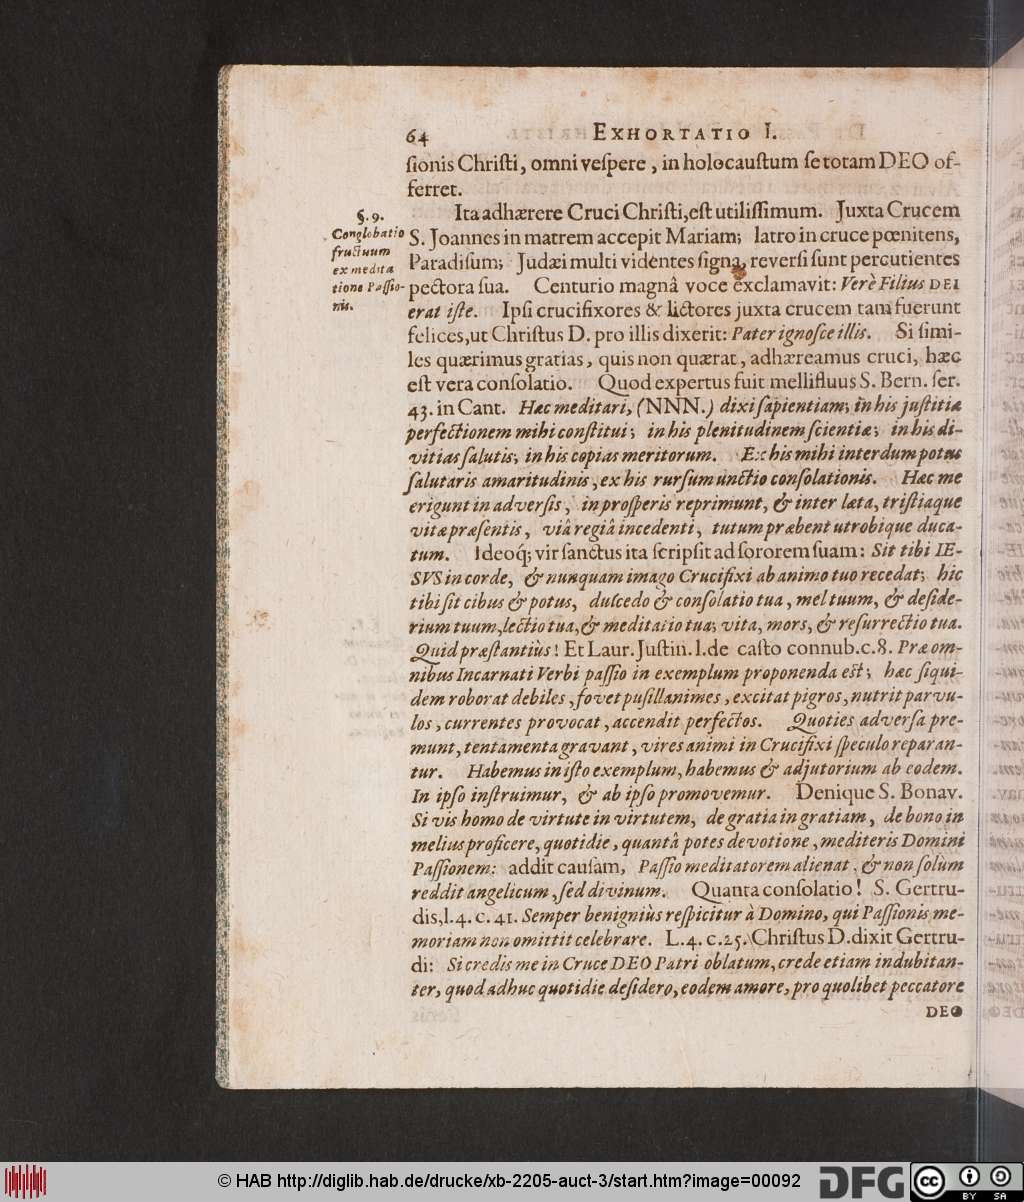 64 EXHORTATIO I.
ſionis Chriſti, omni veſpere, in holocauſtum ſe totam DEO of-
ferret.
§. 9.
Conglobatio
fructuum
ex medita
tione Paſſio-
nis.
Ita adhærere Cruci Chriſti, eſt utiliſſimum. Juxta Crucem
S. Joannes in matrem accepit Mariam; latro in cruce pœnitens,
Paradiſum; Judæi multi videntes ſigna, reverſi ſunt percutientes
pectora ſua. Centurio magnâ voce exclamavit: Verè Filius DEI
erat iſte. Ipſi crucifixores & lictores juxta crucem tam fuerunt
felices, ut Chriſtus D. pro illis dixerit: Pater ignoſce illis. Si ſimi-
les quærimus gratias, quis non quærat, adhæreamus cruci, hæc
eſt vera conſolatio. Quod expertus fuit mellifluus S. Bern. ſer.
43. in Cant. Hæc meditari, (NNN.) dixi ſapientiam; in his juſtitiæ
perfectionem mihi conſtitui; in his plenitudinem ſcientiæ; in his di-
vitias ſalutis; in his copias meritorum. Ex his mihi interdum potus
ſalutaris amaritudinis, ex his rurſum unctio conſolationis. Hæc me
erigunt in adverſis, in proſperis reprimunt, & inter læta, triſtiaque
vitæ præſentis, viâ regiâ incedenti, tutum præbent utrobique duca-
tum. Ideoq́; vir ſanctus ita ſcripſit ad ſororem ſuam: Sit tibi IE-
SVS in corde, & nunquam imago Crucifixi ab animo tuo recedat; hic
tibi ſit cibus & potus, dulcedo & conſolatio tua, mel tuum, & deſide-
rium tuum, lectio tua, & meditatio tua; vita, mors, & reſurrectio tua.
Quid præſtantiùs! Et Laur. Juſtin. l. de caſto connub. c. 8. Præ om-
nibus Incarnati Verbi paſſio in exemplum proponenda eſt; hæc ſiqui-
dem roborat debiles, fovet puſillanimes, excitat pigros, nutrit parvu-
los, currentes provocat, accendit perfectos. Quoties adverſa pre-
munt, tentamenta gravant, vires animi in Crucifixi ſpeculo reparan-
tur. Habemus in iſto exemplum, habemus & adjutorium ab eodem.
In ipſo inſtruimur, & ab ipſo promovemur. Denique S. Bonav.
Si vis homo de virtute in virtutem, de gratia in gratiam, de bono in
melius proficere, quotidie, quantâ potes devotione, mediteris Domini
Paſſionem: addit cauſam, Paſſio meditatorem alienat, & non ſolùm
reddit angelicum, ſed divinum. Quanta conſolatio! S. Gertru-
dis, l. 4. c. 41. Semper benigniùs reſpicitur à Domino, qui Paſſionis me-
moriam non omittit celebrare. L. 4. c. 25. Chriſtus D. dixit Gertru-
di: Si credis me in Cruce DEO Patri oblatum, crede etiam indubitan-
ter, quod adhuc quotidie deſidero, eodem amore, pro quolibet peccatore
DEO
© HAB http://diglib.hab.de/drucke/xb-2205-auct-3/start.htm?image=00092
DFG
cc BY SA